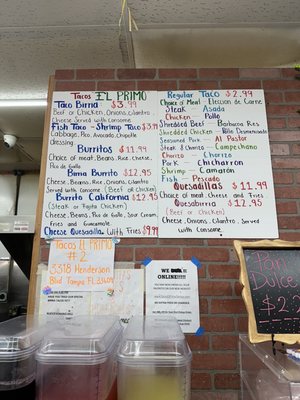 Tacos EL PRIMO
Taco Birria $3.99
Beef or Chicken, Onions, Cilantro
Cheese Served with consome
Fish Taco - Shrimp Taco $3.99
Cabbage, Pico, Avocado, Chipotle
dressing
Burritos $11.99
Choice of meat, Beans, Rice, Cheese,
Pico de Gallo, Guacamole
Birria Burrito $12.95
Cheese, Beans, Rice, Onions, Cilantro
Served with Consome ( Beef or Chicken)
Burrito California $12.95
(Steak or Fajita Chicken)
Cheese, Beans, Pico de Gallo, Sour Cream,
Fries and Guacamole
Cheese Quesadilla With Fries $9.99
Regular Taco $2.99
Choice of Meat - Elección de Carne
Steak - Asada
Chicken - Pollo
Shredded Beef - Barbacoa Res
Shredded Chicken - Pollo Desmenuzado
Seasoned Pork - Al Pastor
Steak & Chorizo - Campechano
Chorizo - Chorizo
Pork - Chicharon
Shrimp - Camarón
Fish - Pescado
Quesadillas $11.99
Choice of meat, Cheese and Fries
Quesabirria $12.95
(Beef or Chicken)
Onions, Cilantro, Served
with Consome
Tacos El PRIMO
# 2
3318 Henderson
Blvd Tampa FL 33609
WE ALSO
Pan
Dulce
$2.